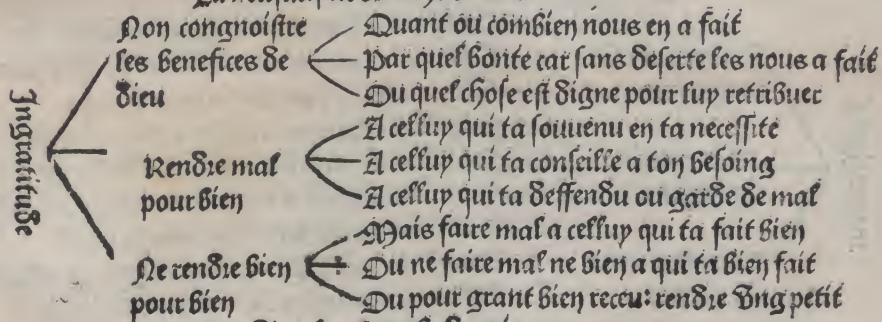 Ingratitude
Non congnoistre
les benefices de
dieu
Quant ou combien nous en a fait
Par quel bonte car sans deserte les nous a fait
Ou quel chose est digne pour luy retribuer
Rendre mal
pour bien
A celluy qui ta souuenu en ta necessite
A celluy qui ta conseille a ton besoing
A celluy qui ta deffendu ou garde de mal
Ne rendre bien
pour bien
Mais faire mal a celluy qui ta fait bien
Ou ne faire mal ne bien a qui ta bien fait
Ou pour grant bien receu: rendre vng petit